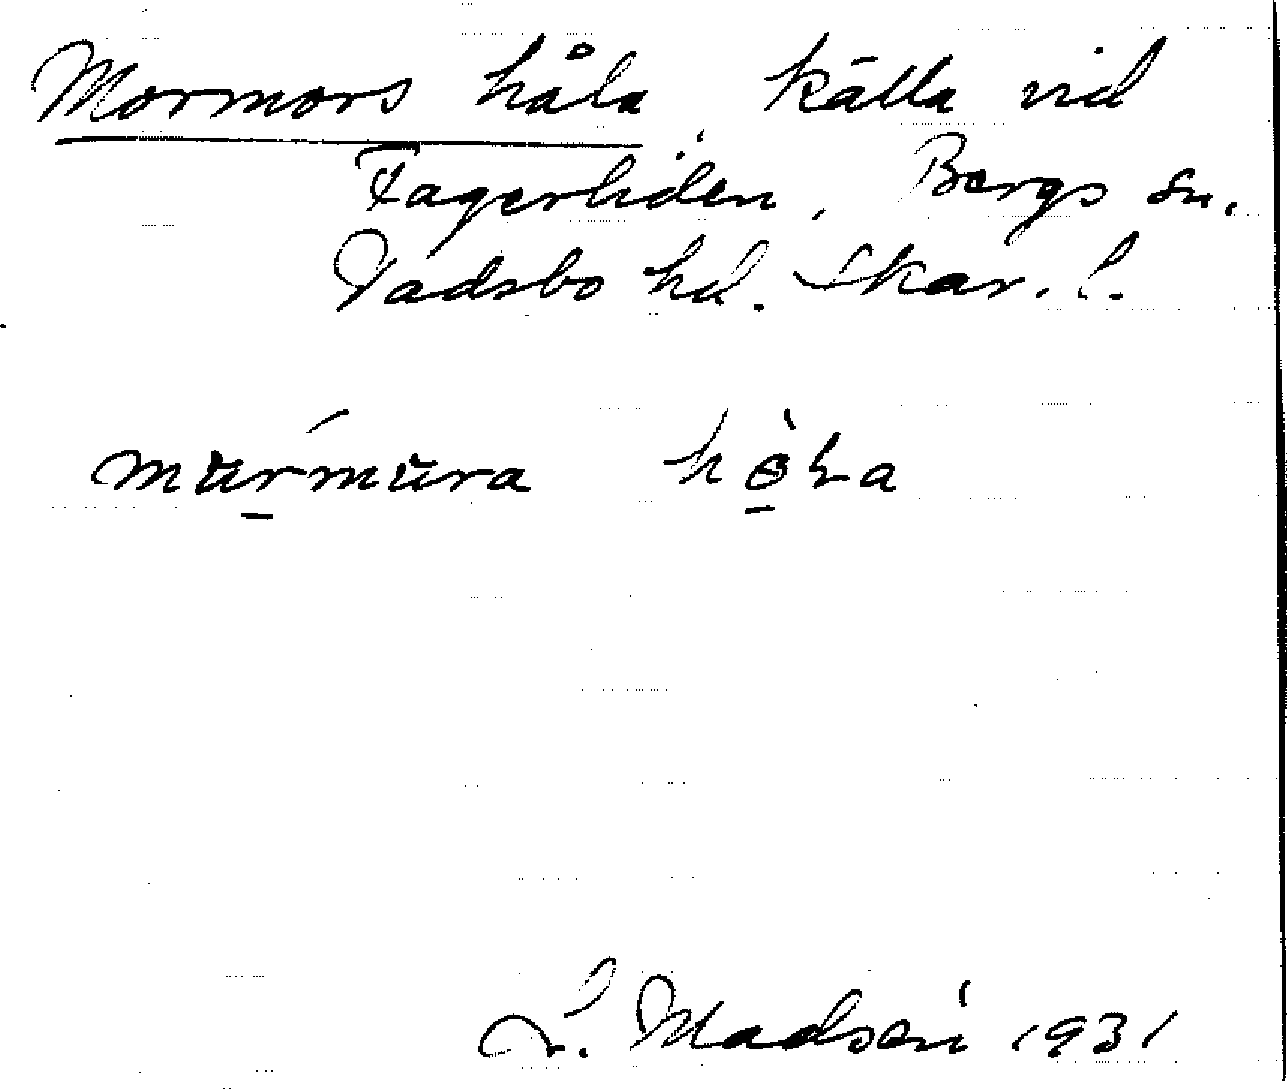 Mormors håla, källa vid
Fagerliden, Bergs sn.
Vadsbo hd. Skar. l.
murmura
Madsén 1931